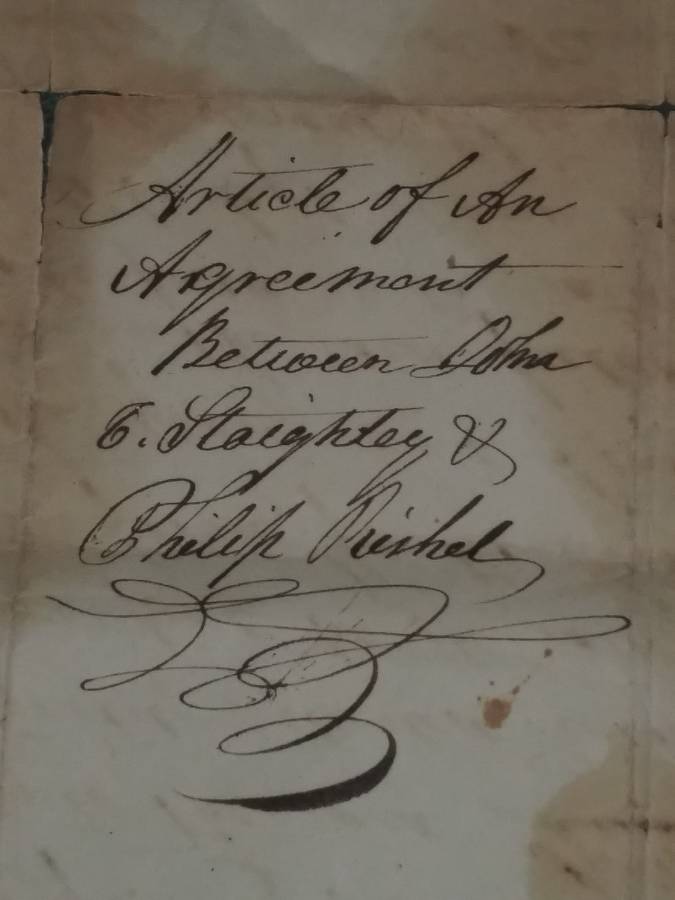 Article of An
Agreement
Between John
E. Slaighley &
Philip Rishel